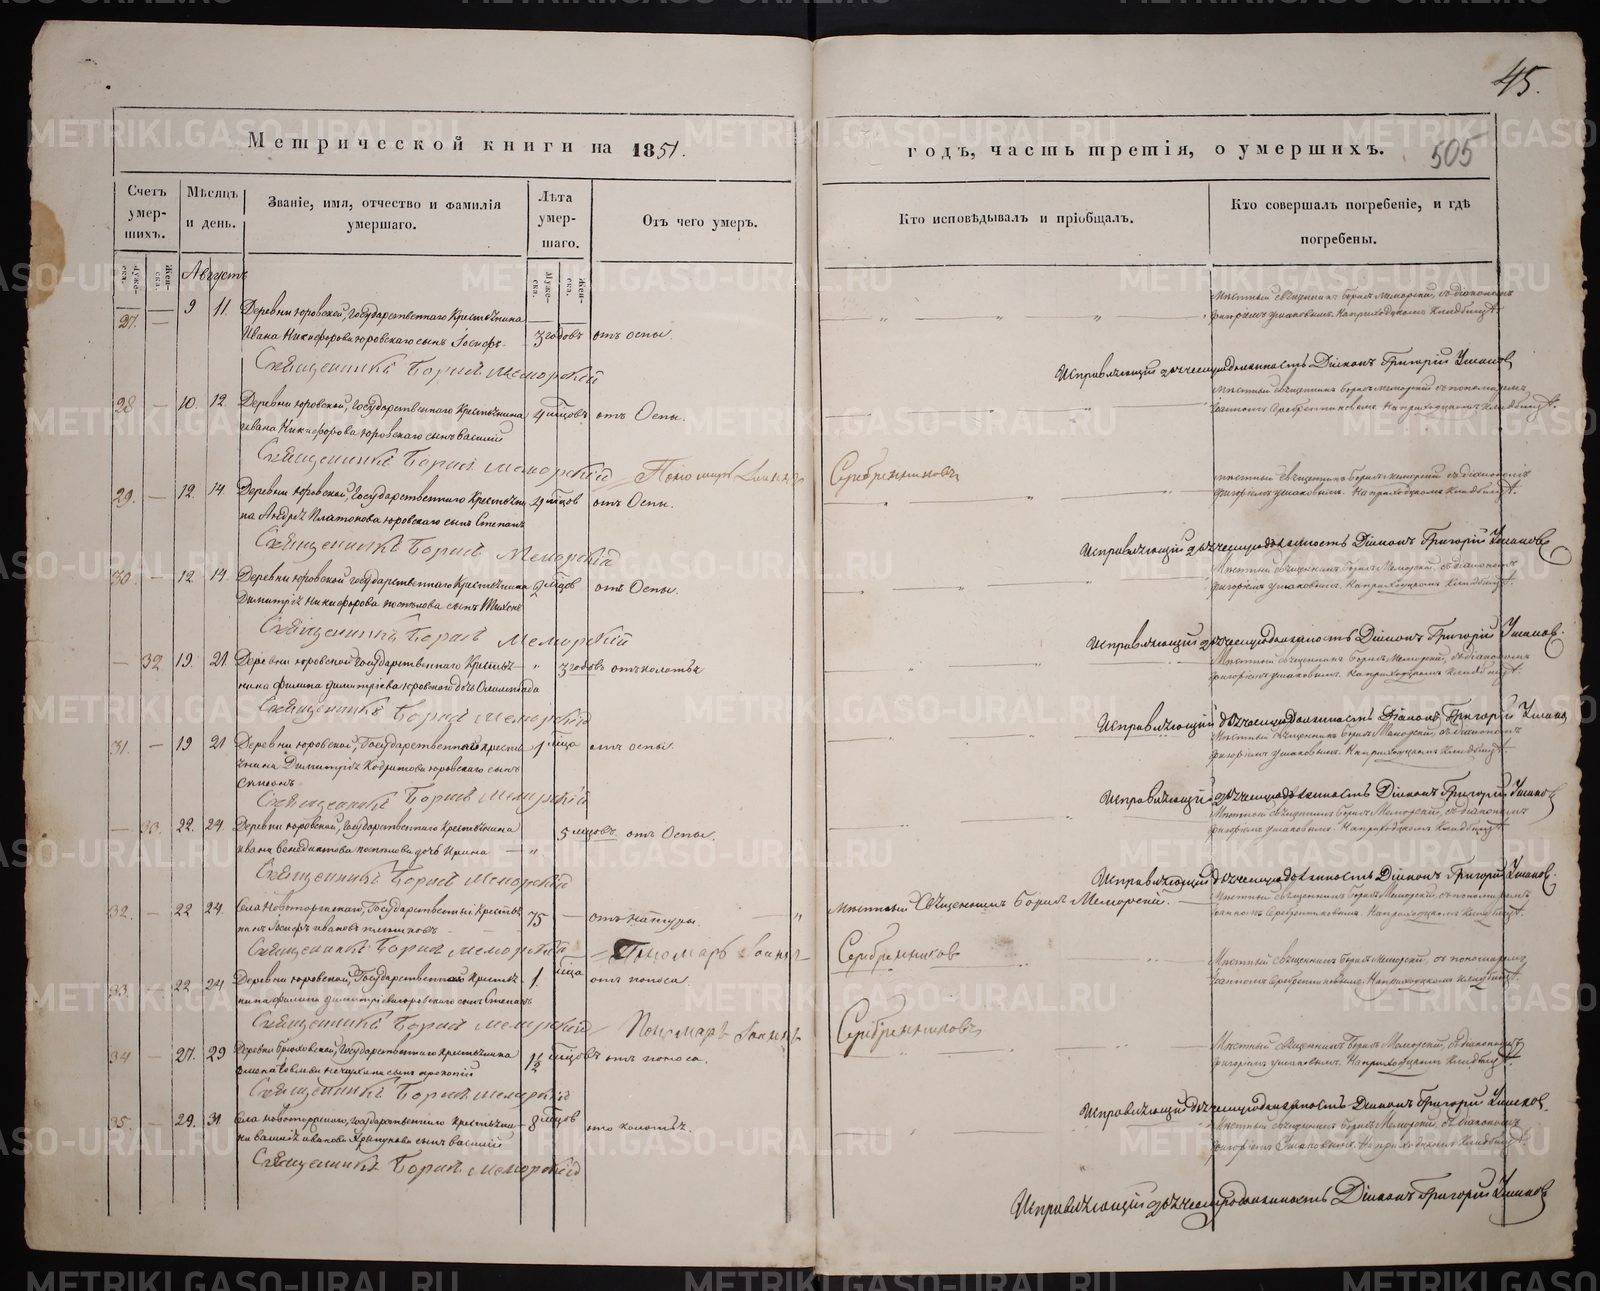 45.
Метрической книги на 1851.
годъ, часть третія, о умершихъ. 505
Счетъ умер-шихъ.
Муже-ска.
Жен-ска.
Мѣсяцъ и день.
Званіе, имя, отчество и фамилія умершаго.
Лѣта умер-шаго.
Муже-ска.
Жен-ска.
Отъ чего умеръ.
Кто исповѣдывалъ и пріобщалъ.
Кто совершалъ погребеніе, и гдѣ погребены.
Августъ
27. — 9 11. Деревни Юровской, Государственнаго Крестьянина
Ивана Никифорова Юровскаго сынъ Іосифъ 3 годовъ отъ оспы.
Мѣстный священникъ Борисъ Меморскій, съ діакономъ
Григоріемъ Ушаковымъ. На приходскомъ кладбищѣ.
Священникъ Борисъ Меморскій
Исправляющій дьяческую должность Діаконъ Григорій Ушаковъ
28 — 10. 12. Деревни Юровской, Государственнаго Крестьянина
Ивана Никифорова Юровскаго сынъ Василій 4 мѣсцовъ отъ Оспы.
Мѣстный священникъ Борисъ Меморскій съ пономаремъ
Іоанномъ Серебренниковымъ. На приходскомъ кладбищѣ.
Священникъ Борисъ Меморскій Пономарь Іоаннъ Серебренниковъ
29. — 12. 14. Деревни Юровской, Государственнаго Крестьяни-
на Андрея Платонова Юровскаго сынъ Степанъ мѣсцов отъ Оспы.
Мѣстный священникъ Борисъ Меморскій съ діакономъ
Григоріемъ Ушаковымъ. На приходскомъ кладбищѣ.
Священникъ Борисъ Меморскій
Исправляющій дьяческую должность Діаконъ Григорій Ушаковъ
30. — 12 14. Деревни Юровской Государственнаго Крестьянина
Димитрія Никифорова Поспѣлова сынъ Тихонъ 9 мѣсцов отъ Оспы.
Мѣстный священникъ Борисъ Меморскій, съ діакономъ
Григоріемъ Ушаковымъ. На приходскомъ кладбищѣ.
Священникъ Борисъ Меморскій
Исправляющій дьяческую должность Діаконъ Григорій Ушаковъ.
— 32 19. 21 Деревни Юровской Государственнаго Крестья-
нина Филипа Димитріева Юровскаго дочь Олимпіада " 3 годовъ отъ колотья
Мѣстный священникъ Борисъ Меморскій, съ діакономъ
Григоріемъ Ушаковымъ. На приходскомъ кладбищѣ.
Священникъ Борисъ Меморскій
Исправляющій дьяческую должность Діаконъ Григорій Ушаковъ
31. — 19 21 Деревни Юровской, Государственнаго Крестья-
нина Димитрія Юровскаго сынъ
Симеонъ 1 мѣсца отъ оспы.
Мѣстный священникъ Борисъ Меморскій, съ діакономъ
Григоріемъ Ушаковымъ. На приходскомъ кладбищѣ.
Священникъ Борисъ Меморскій
Исправляющій дьяческую должность Діаконъ Григорій Ушаковъ
— 33. 22. 24. Деревни Юровской, Государственнаго Крестьянина
Ивана Венедиктова Поспѣлова дочь Ирина — " 5 мѣсцовъ. отъ Оспы.
Мѣстный священникъ Борисъ Меморскій, съ діакономъ
Григоріемъ Ушаковымъ. На приходскомъ кладбищѣ.
Священникъ Борисъ Меморскій
Исправляющій дьяческую должность Діаконъ Григорій Ушаковъ.
32. — 22 24. Села Новоторжскаго, Государственный Крестья-
нинъ Іосифъ Ивановъ 75 — отъ натуры.
Мѣстный Священникъ Борисъ Меморскій. —
Мѣстный священникъ Борисъ Меморскій, съ пономаремъ
Іоанномъ Серебренниковымъ. На приходскомъ кладбищѣ.
Священникъ Борисъ Меморскій — Пономарь Іоаннъ Серебренниковъ
33. — 22 24 Деревни Юровской, Государственнаго Крестья-
нина Филипа Димитріева Юровскаго сынъ Степанъ 1 мѣсца отъ поноса.
Мѣстный священникъ Борисъ Меморскій, съ пономаремъ
Іоанномъ Серебренниковымъ. На приходскомъ кладбищѣ.
Священникъ Борисъ Меморскій Пономарь Іоаннъ Серебренниковъ
34 — 27. 29 Деревни Государственнаго Крестьянина
сынъ Прокопій 1½ мѣсцовъ отъ поноса.
Мѣстный священникъ Борисъ Меморскій, съ діакономъ
Григоріемъ Ушаковымъ. На приходскомъ кладбищѣ.
Священникъ Борисъ Меморскій
Исправляющій дьяческую должность Діаконъ Григорій Ушаковъ.
35. — 29. 31 Села Новоторжскаго, Государственнаго Крестьяни-
на Василія Иванова сынъ Василій 8 мѣсцов отъ колотья.
Мѣстный священникъ Борисъ Меморскій, съ діакономъ
Григоріемъ Ушаковымъ. На приходскомъ кладбищѣ.
Священникъ Борисъ Меморскій
Исправляющій дьяческую должность Діаконъ Григорій Ушаковъ
METRIKI.GASO-URAL.RU